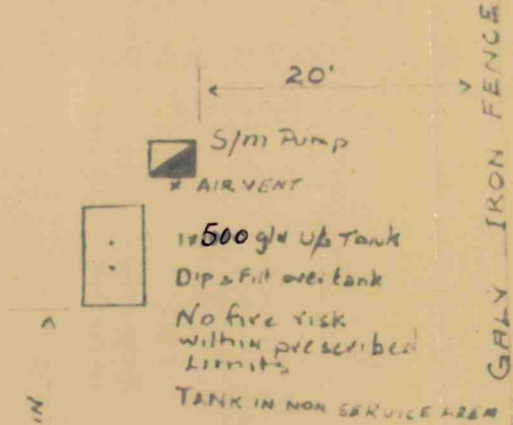 20'
S/m Pump
x AIR VENT
1x500 gln U/G Tank
Dip & Fill over tank
No fire risk
within prescribed
Limits
TANK IN NON SERVICE AREA
GALV IRON FENCE
IN